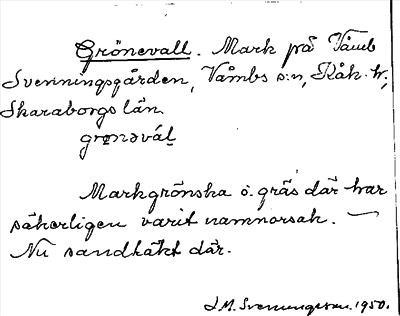 Grönevall. Mark på Våmb
Svenningsgården, Våmbs s:n, Kåk. hr,
Skaraborgs län.
grønəvál
Markgrönska o. gräs där har
säkerligen varit namnorsak. —
Nu sandtäkt där.
J.M. Svenungsson. 1950.